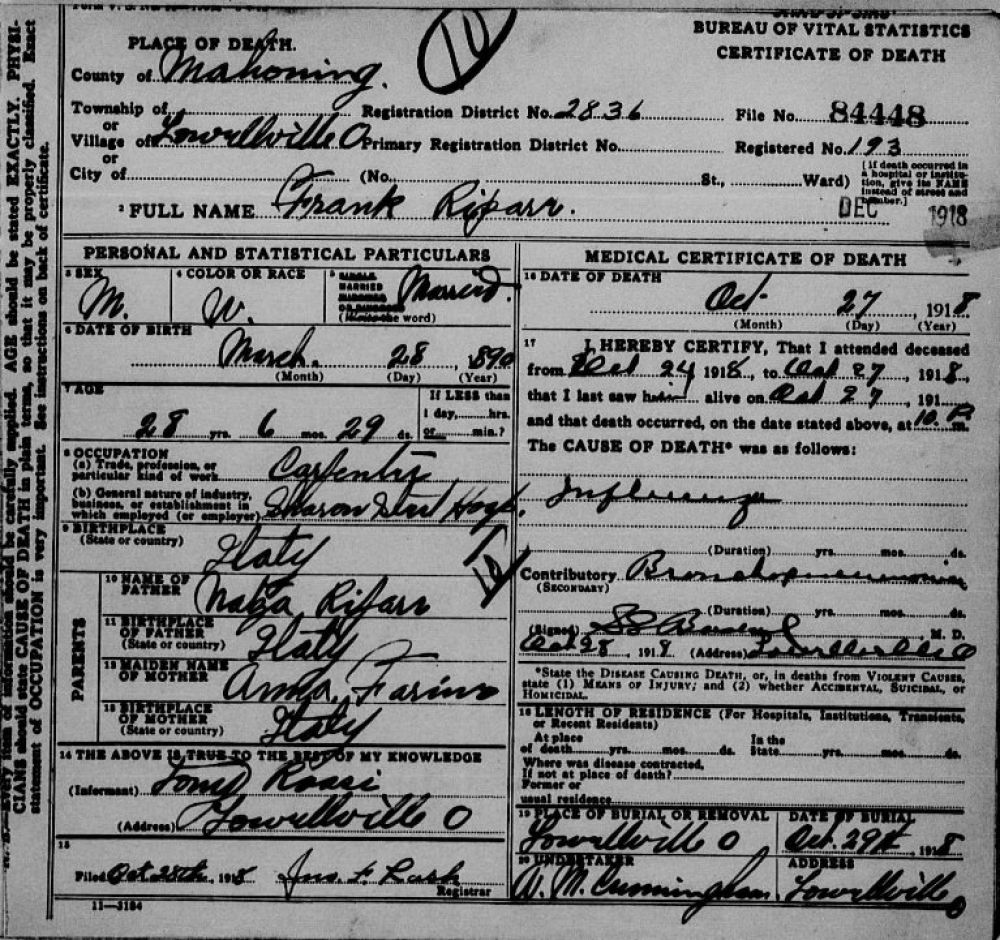 BUREAU OF VITAL STATISTICS
CERTIFICATE OF DEATH
10
PLACE OF DEATH.
County of Mahoning.
Township of Registration District No. 2836 File No. 84448
or
Village of Lowellville O Primary Registration District No. Registered No. 193
or
City of (No. St., Ward) [If death occurred in a hospital or institution, give its NAME instead of street and number.]
2 FULL NAME Frank Rifarr.
DEC 1918
PERSONAL AND STATISTICAL PARTICULARS
3 SEX M.
4 COLOR OR RACE W.
5 SINGLE MARRIED WIDOWED OR DIVORCED (Write the word) Married.
6 DATE OF BIRTH
March. 28, 1890
(Month) (Day) (Year)
7 AGE
28 yrs. 6 mos. 29 ds.
If LESS than
1 day, hrs.
or min.?
8 OCCUPATION
(a) Trade, profession, or particular kind of work Carpentry
(b) General nature of industry, business, or establishment in which employed (or employer) Sharon Steel
9 BIRTHPLACE
(State or country) Italy
PARENTS
10 NAME OF FATHER Rifarr
11 BIRTHPLACE OF FATHER
(State or country) Italy
12 MAIDEN NAME OF MOTHER Anna, Farino
13 BIRTHPLACE OF MOTHER
(State or country) Italy
14 THE ABOVE IS TRUE TO THE BEST OF MY KNOWLEDGE
(Informant) Tony Rossi
(Address) Lowellville O
15
Filed Oct 28th, 1918 Jno. F. Lash
Registrar
11—3184
MEDICAL CERTIFICATE OF DEATH
16 DATE OF DEATH
Oct. 27, 1918
(Month) (Day) (Year)
17 I HEREBY CERTIFY, That I attended deceased
from Oct 24 1918, to Oct 27, 1918,
that I last saw him alive on Oct 27, 191
and that death occurred, on the date stated above, at 10. P m.
The CAUSE OF DEATH* was as follows:
Influenza
(Duration) yrs. mos. ds.
Contributory Bronchopneumonia
(SECONDARY)
(Duration) yrs. mos. ds.
(Signed) M. D.
Oct 28, 1918 (Address) Lowellville O
*State the DISEASE CAUSING DEATH, or, in deaths from VIOLENT CAUSES,
state (1) MEANS OF INJURY; and (2) whether ACCIDENTAL, SUICIDAL, or
HOMICIDAL.
18 LENGTH OF RESIDENCE (For Hospitals, Institutions, Transients,
or Recent Residents)
At place of death yrs. mos. ds. In the State yrs. mos. ds.
Where was disease contracted,
If not at place of death?
Former or
usual residence
19 PLACE OF BURIAL OR REMOVAL DATE OF BURIAL
Lowellville O Oct. 29th, 1918
20 UNDERTAKER ADDRESS
W. M. Cunningham. Lowellville O
CIANS should state CAUSE OF DEATH in plain terms, so that it may be properly classified. Exact
statement of OCCUPATION is very important. See instructions on back of certificate.